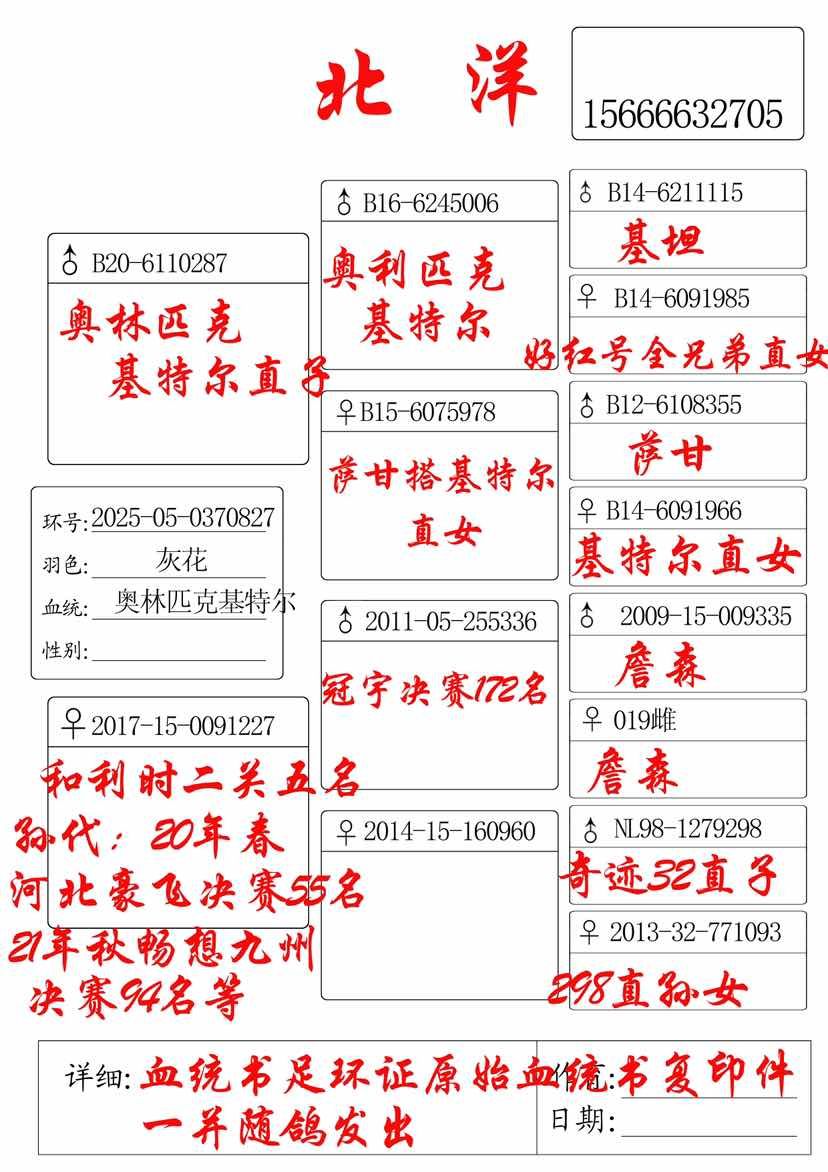 北 洋
15666632705
♂ B20-6110287
奥林匹克
基特尔直子
环号:2025-05-0370827
羽色: 灰花
血统: 奥林匹克基特尔
性别:
♀ 2017-15-0091227
和利时二关五名
孙代：20年春
河北豪飞决赛55名
21年秋畅想九州
决赛94名等
♂ B16-6245006
奥利匹克
基特尔
♀B15-6075978
萨甘搭基特尔
直女
♂ 2011-05-255336
冠宇决赛172名
♀ 2014-15-160960
♂ B14-6211115
基坦
♀ B14-6091985
好红号全兄弟直女
♂ B12-6108355
萨甘
♀ B14-6091966
基特尔直女
♂ 2009-15-009335
詹森
♀ 019雌
詹森
♂ NL98-1279298
奇迹32直子
♀ 2013-32-771093
298直孙女
详细: 血统书足环证原始血统书复印件
一并随鸽发出
日期: